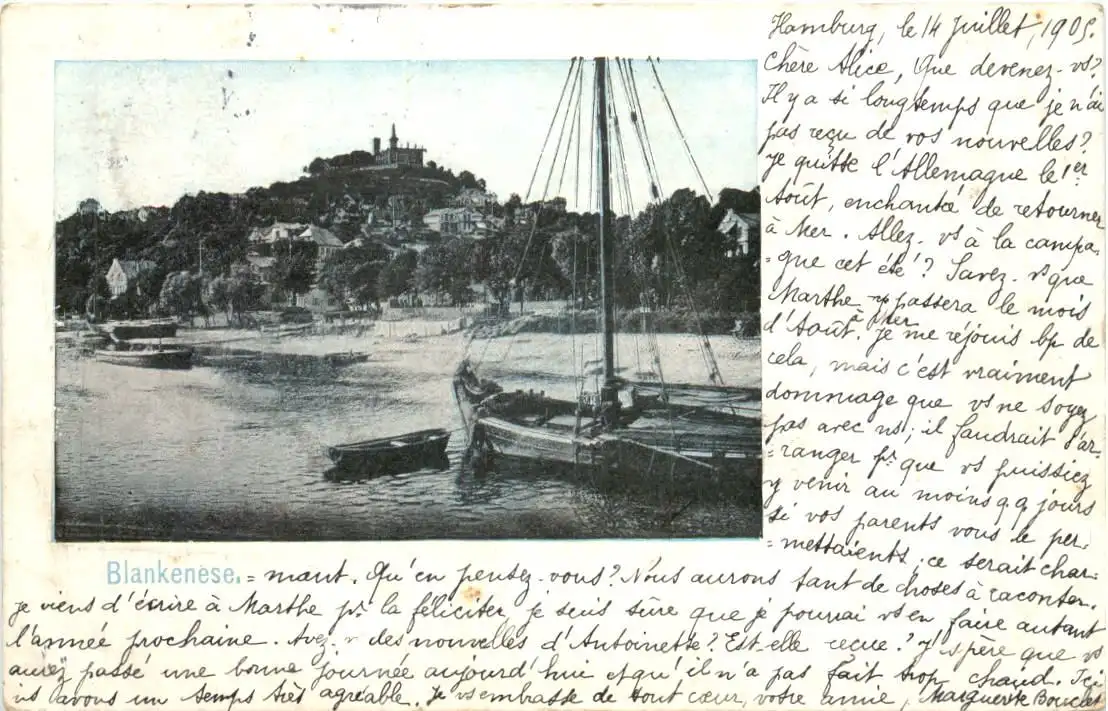 Hamburg, le 14 Juillet, 1905.
Chère Alice, Que devenez-vs?
Il y a si longtemps que je n'ai
pas reçu de vos nouvelles?
Je quitte l'Allemagne le 1er
Août, enchantée de retourner
à Mer. Allez-vs à la campa-
=gne cet été? Savez-vs que
Marthe y passera le mois
d'Août à Mer. Je me réjouis bp de
cela, mais c'est vraiment
dommage que vs ne soyez
pas avec ns; il faudrait s'ar-
=ranger pr que vs puissiez
y venir au moins qq jours
si vos parents vous le per-
=mettaient; ce serait char-
Blankenese.
=mant. Qu'en pensez-vous? Nous aurons tant de choses à raconter.
Je viens d'écrire à Marthe pr la féliciter, je suis sûre que je pourrai vs en faire autant
l'année prochaine. Avez-v des nouvelles d'Antoinette? Est-elle reçue? J'espère que vs
aurez passé une bonne journée aujourd'hui et qu'il n'a pas fait trop chaud. Ici
ns avons un temps très agréable. Je vs embrasse de tout cœur, votre amie, Marguerite Bouclet